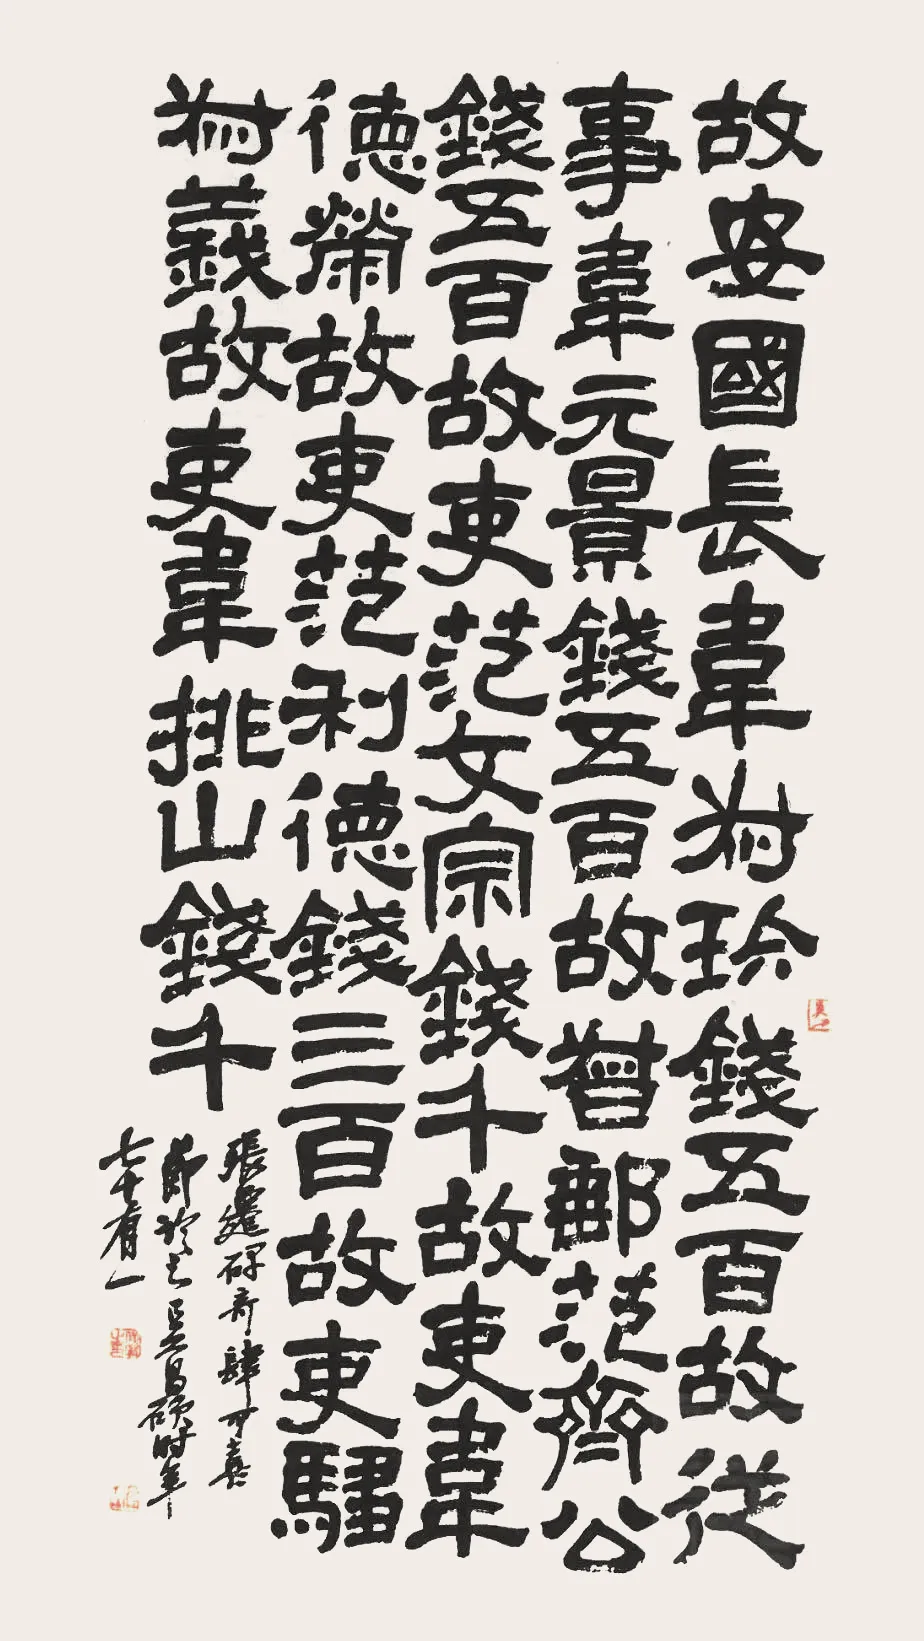 故安國長韋叔珍錢五百故從
事韋元景錢五百故督郵范齊公
錢五百故吏范文宗錢千故吏韋
德榮故吏范利德錢三百故吏騶
叔義故吏韋排山錢千
張遷碑奇肆可喜
節臨之吳昌碩時年
七十有一